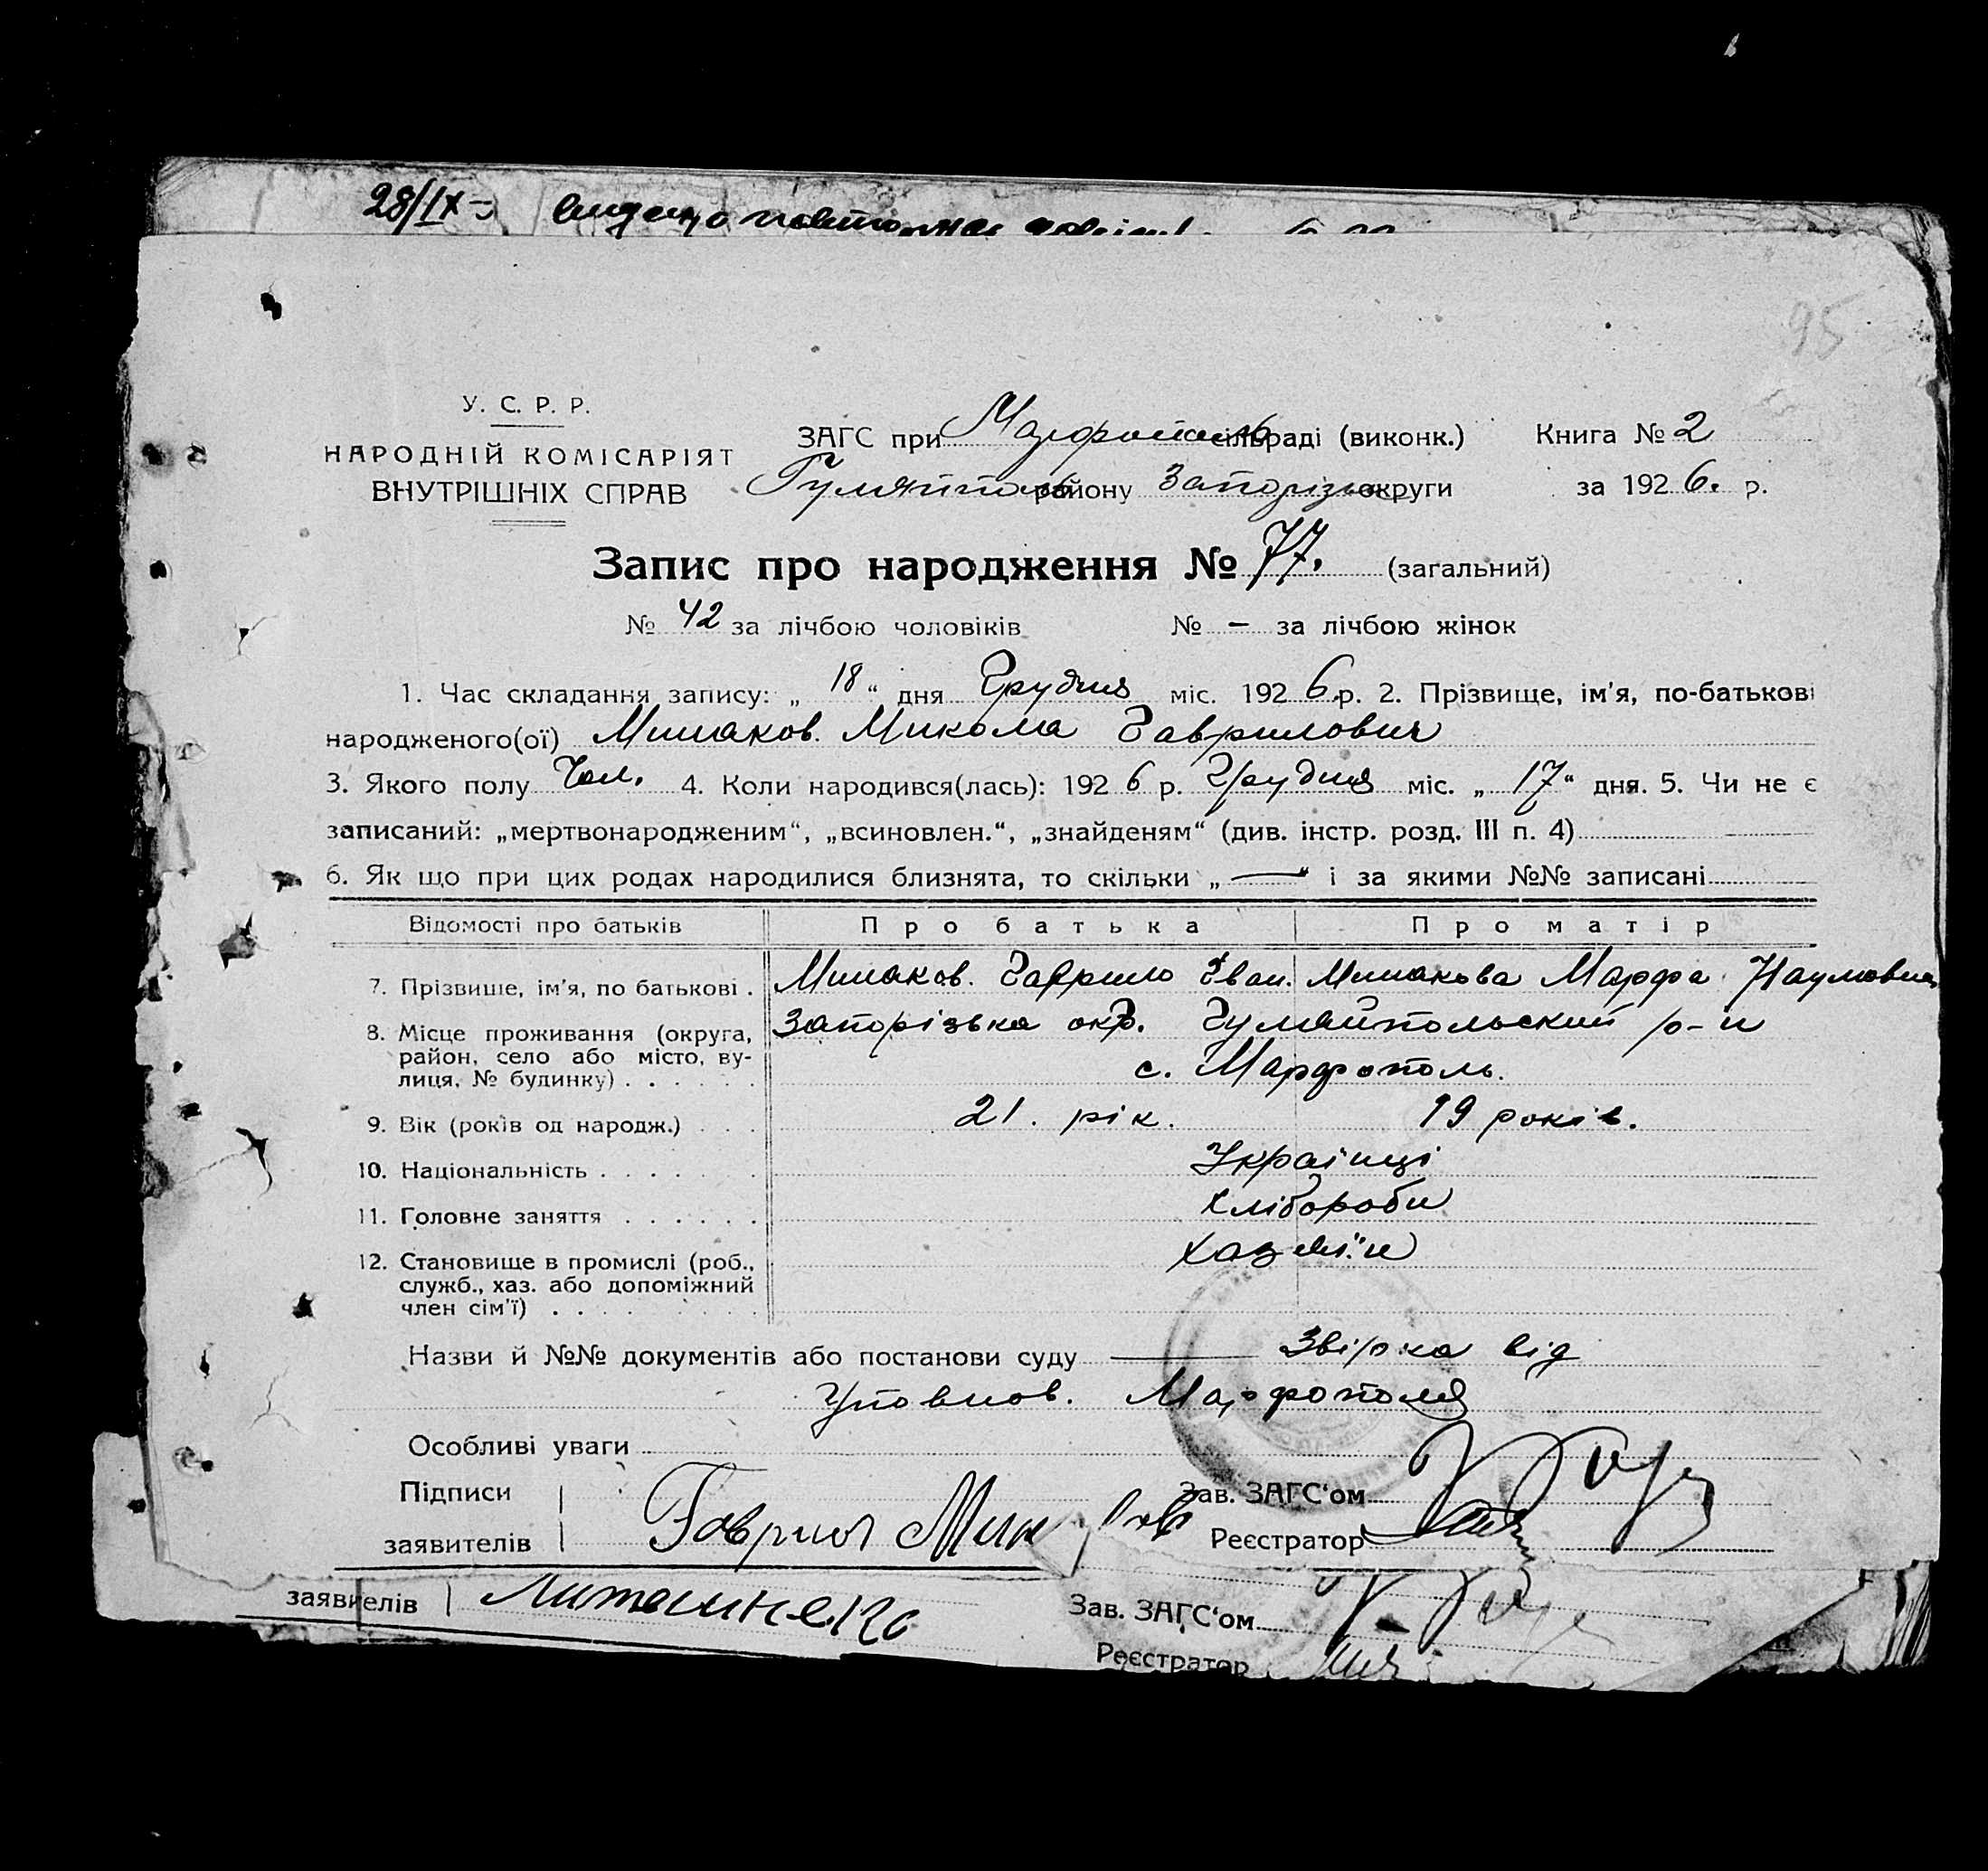 28/IX
95
У. С. Р. Р.
НАРОДНІЙ КОМІСАРІЯТ
ВНУТРІШНІХ СПРАВ
ЗАГС при Марфопольс сільраді (виконк.) Книга № 2
Гуляйпольс району Запорізьк округи за 1926. р.
Запис про народження № 77. (загальний)
№ 42 за лічбою чоловіків № – за лічбою жінок
1. Час складання запису: „18“ дня Грудня міс. 1926 р. 2. Прізвище, ім'я, по-батькові
народженого(ої) Мишаков. Микола Гаврилович
3. Якого полу Чол. 4. Коли народився(лась): 1926 р. Грудня міс. „17“ дня. 5. Чи не є
записаний: „мертвонародженим“, „всиновлен.“, „знайденям“ (див. інстр. розд. III п. 4)
6. Як що при цих родах народилися близнята, то скільки „—“ і за якими №№ записані
Відомості про батьків Про батька Про матір
7. Прізвище, ім'я, по батькові . Мишаков. Гаврило Іван. Мишакова Марфа Наумовна
8. Місце проживання (округа, Запорізька окр. Гуляйпольский р-н
район, село або місто, ву- с. Марфополь.
лиця, № будинку)
9. Вік (років од народж.) 21. рік. 19 років.
10. Національність Українці
11. Головне заняття Хлібороби
12. Становище в промислі (роб., Хазяїн
служб., хаз. або допоміжний
член сім'ї)
Назви й №№ документів або постанови суду — Звірка від
Уповнов. Марфополя
Особливі уваги
Підписи Зав. ЗАГС'ом
заявителів Гаврил Реєстратор
заявителів Зав. ЗАГС'ом
Реєстратор